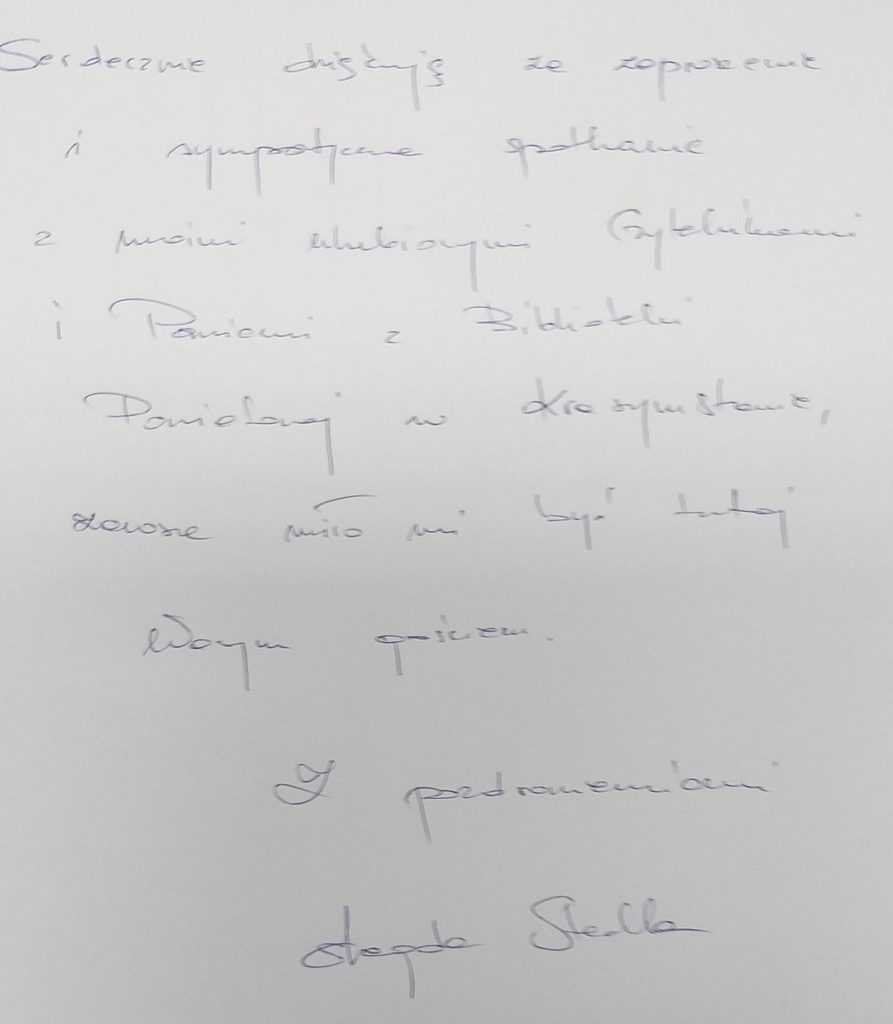 Serdecznie dziękuję za zaproszenie
i sympatyczne spotkanie
z moimi ulubionymi Czytelnikami
i Paniami z Biblioteki
Powiatowej w Krasnymstawie,
zawsze miło mi być tutaj
Waszym gościem.
Z pozdrowieniami
Magda